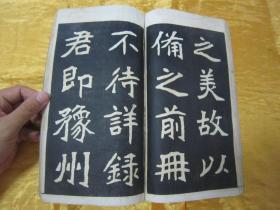 之美故以
備之前冊
不待詳録
君即豫州